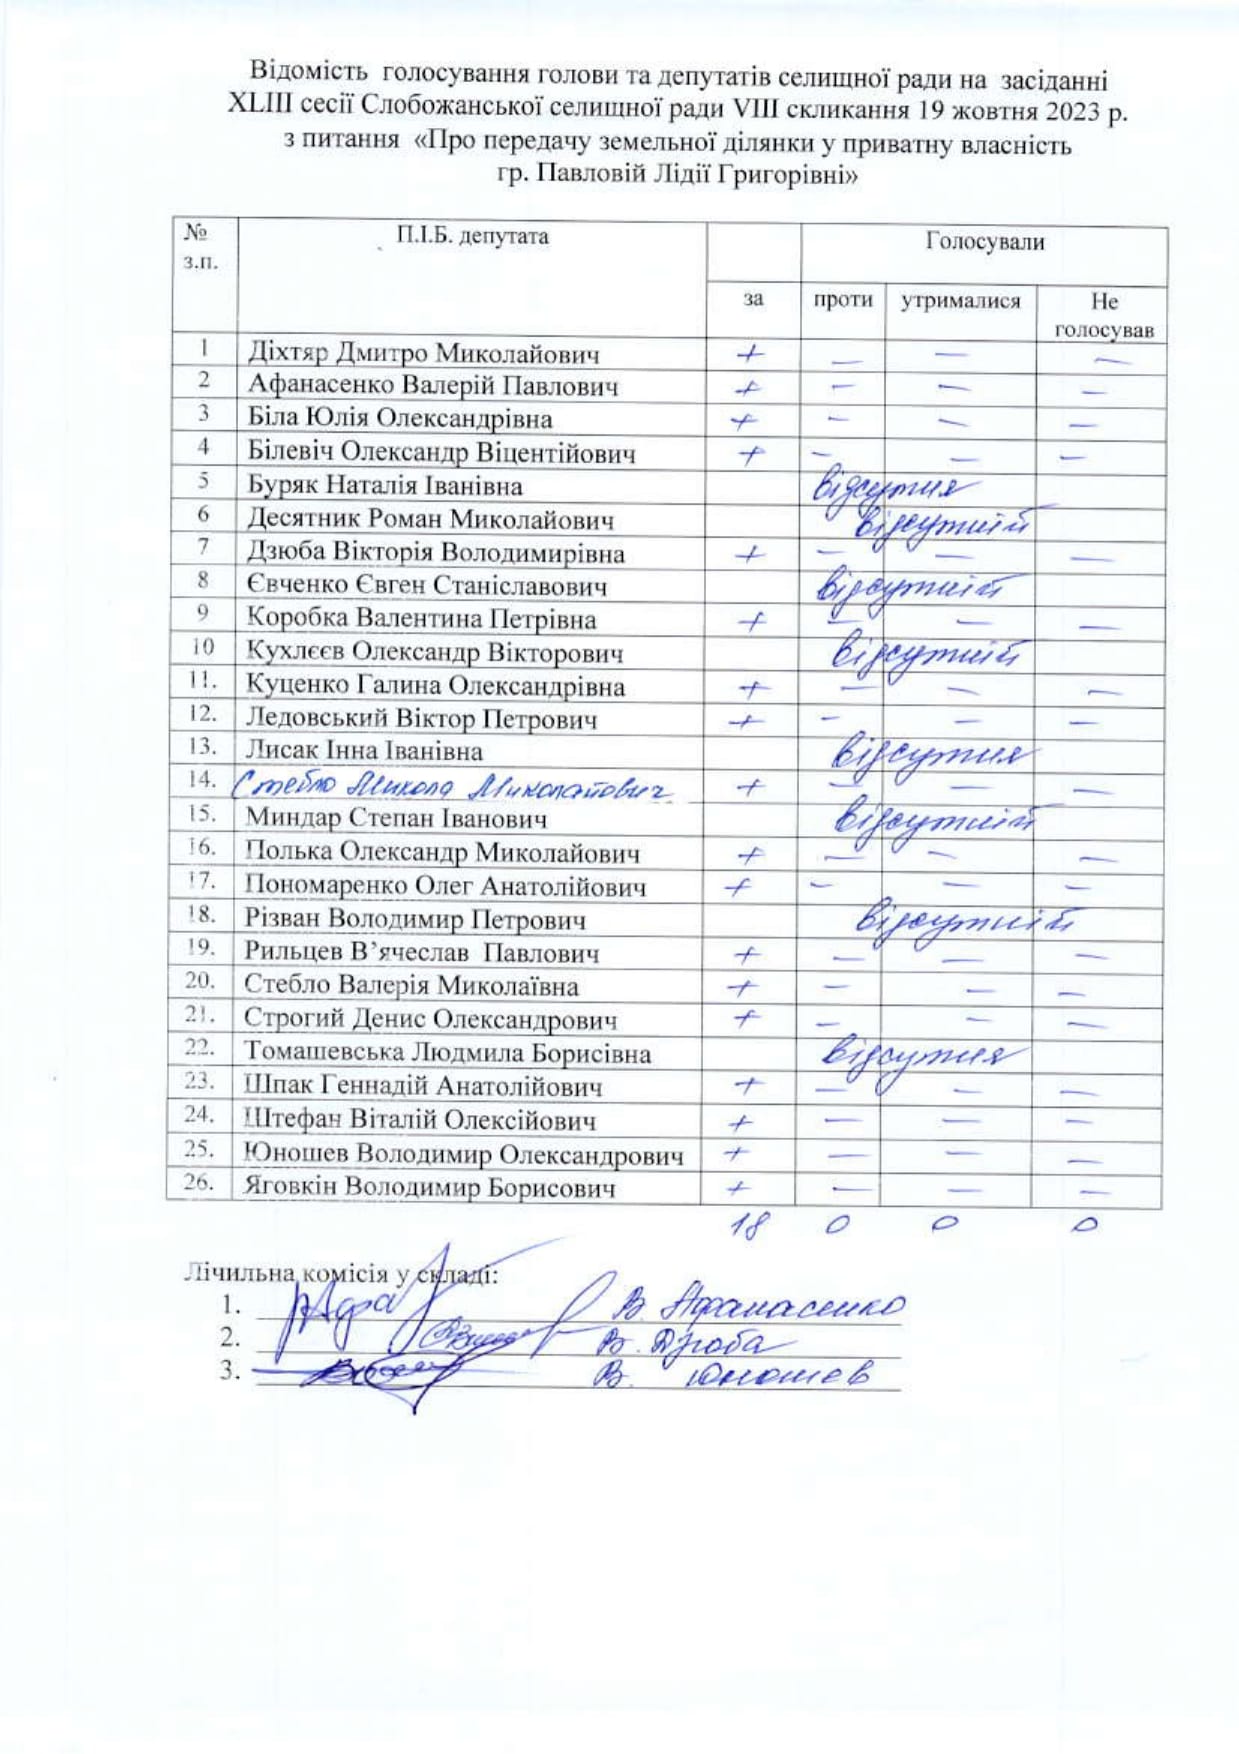 Відомість голосування голови та депутатів селищної ради на засіданні
XLIII сесії Слобожанської селищної ради VIII скликання 19 жовтня 2023 р.
з питання «Про передачу земельної ділянки у приватну власність
гр. Павловій Лідії Григорівні»
№ з.п. П.І.Б. депутата Голосували
за проти утрималися Не голосував
1 Діхтяр Дмитро Миколайович + — — —
2 Афанасенко Валерій Павлович + — — —
3 Біла Юлія Олександрівна + — — —
4 Білевіч Олександр Віцентійович + — — —
5 Буряк Наталія Іванівна відсутня
6 Десятник Роман Миколайович відсутній
7 Дзюба Вікторія Володимирівна + — — —
8 Євченко Євген Станіславович відсутній
9 Коробка Валентина Петрівна + — — —
10 Кухлєєв Олександр Вікторович відсутній
11. Куценко Галина Олександрівна + — — —
12. Ледовський Віктор Петрович + — — —
13. Лисак Інна Іванівна відсутня
14. Стебло Микола Миколайович + — — —
15. Миндар Степан Іванович відсутній
16. Полька Олександр Миколайович + — — —
17. Пономаренко Олег Анатолійович + — — —
18. Різван Володимир Петрович відсутній
19. Рильцев В’ячеслав Павлович + — — —
20. Стебло Валерія Миколаївна + — — —
21. Строгий Денис Олександрович + — — —
22. Томашевська Людмила Борисівна відсутня
23. Шпак Геннадій Анатолійович + — — —
24. Штефан Віталій Олексійович + — — —
25. Юношев Володимир Олександрович + — — —
26. Яговкін Володимир Борисович + — — —
18 0 0 0
Лічильна комісія у складі:
1. В. Афанасенко
2. В. Дзюба
3. В. Юношев